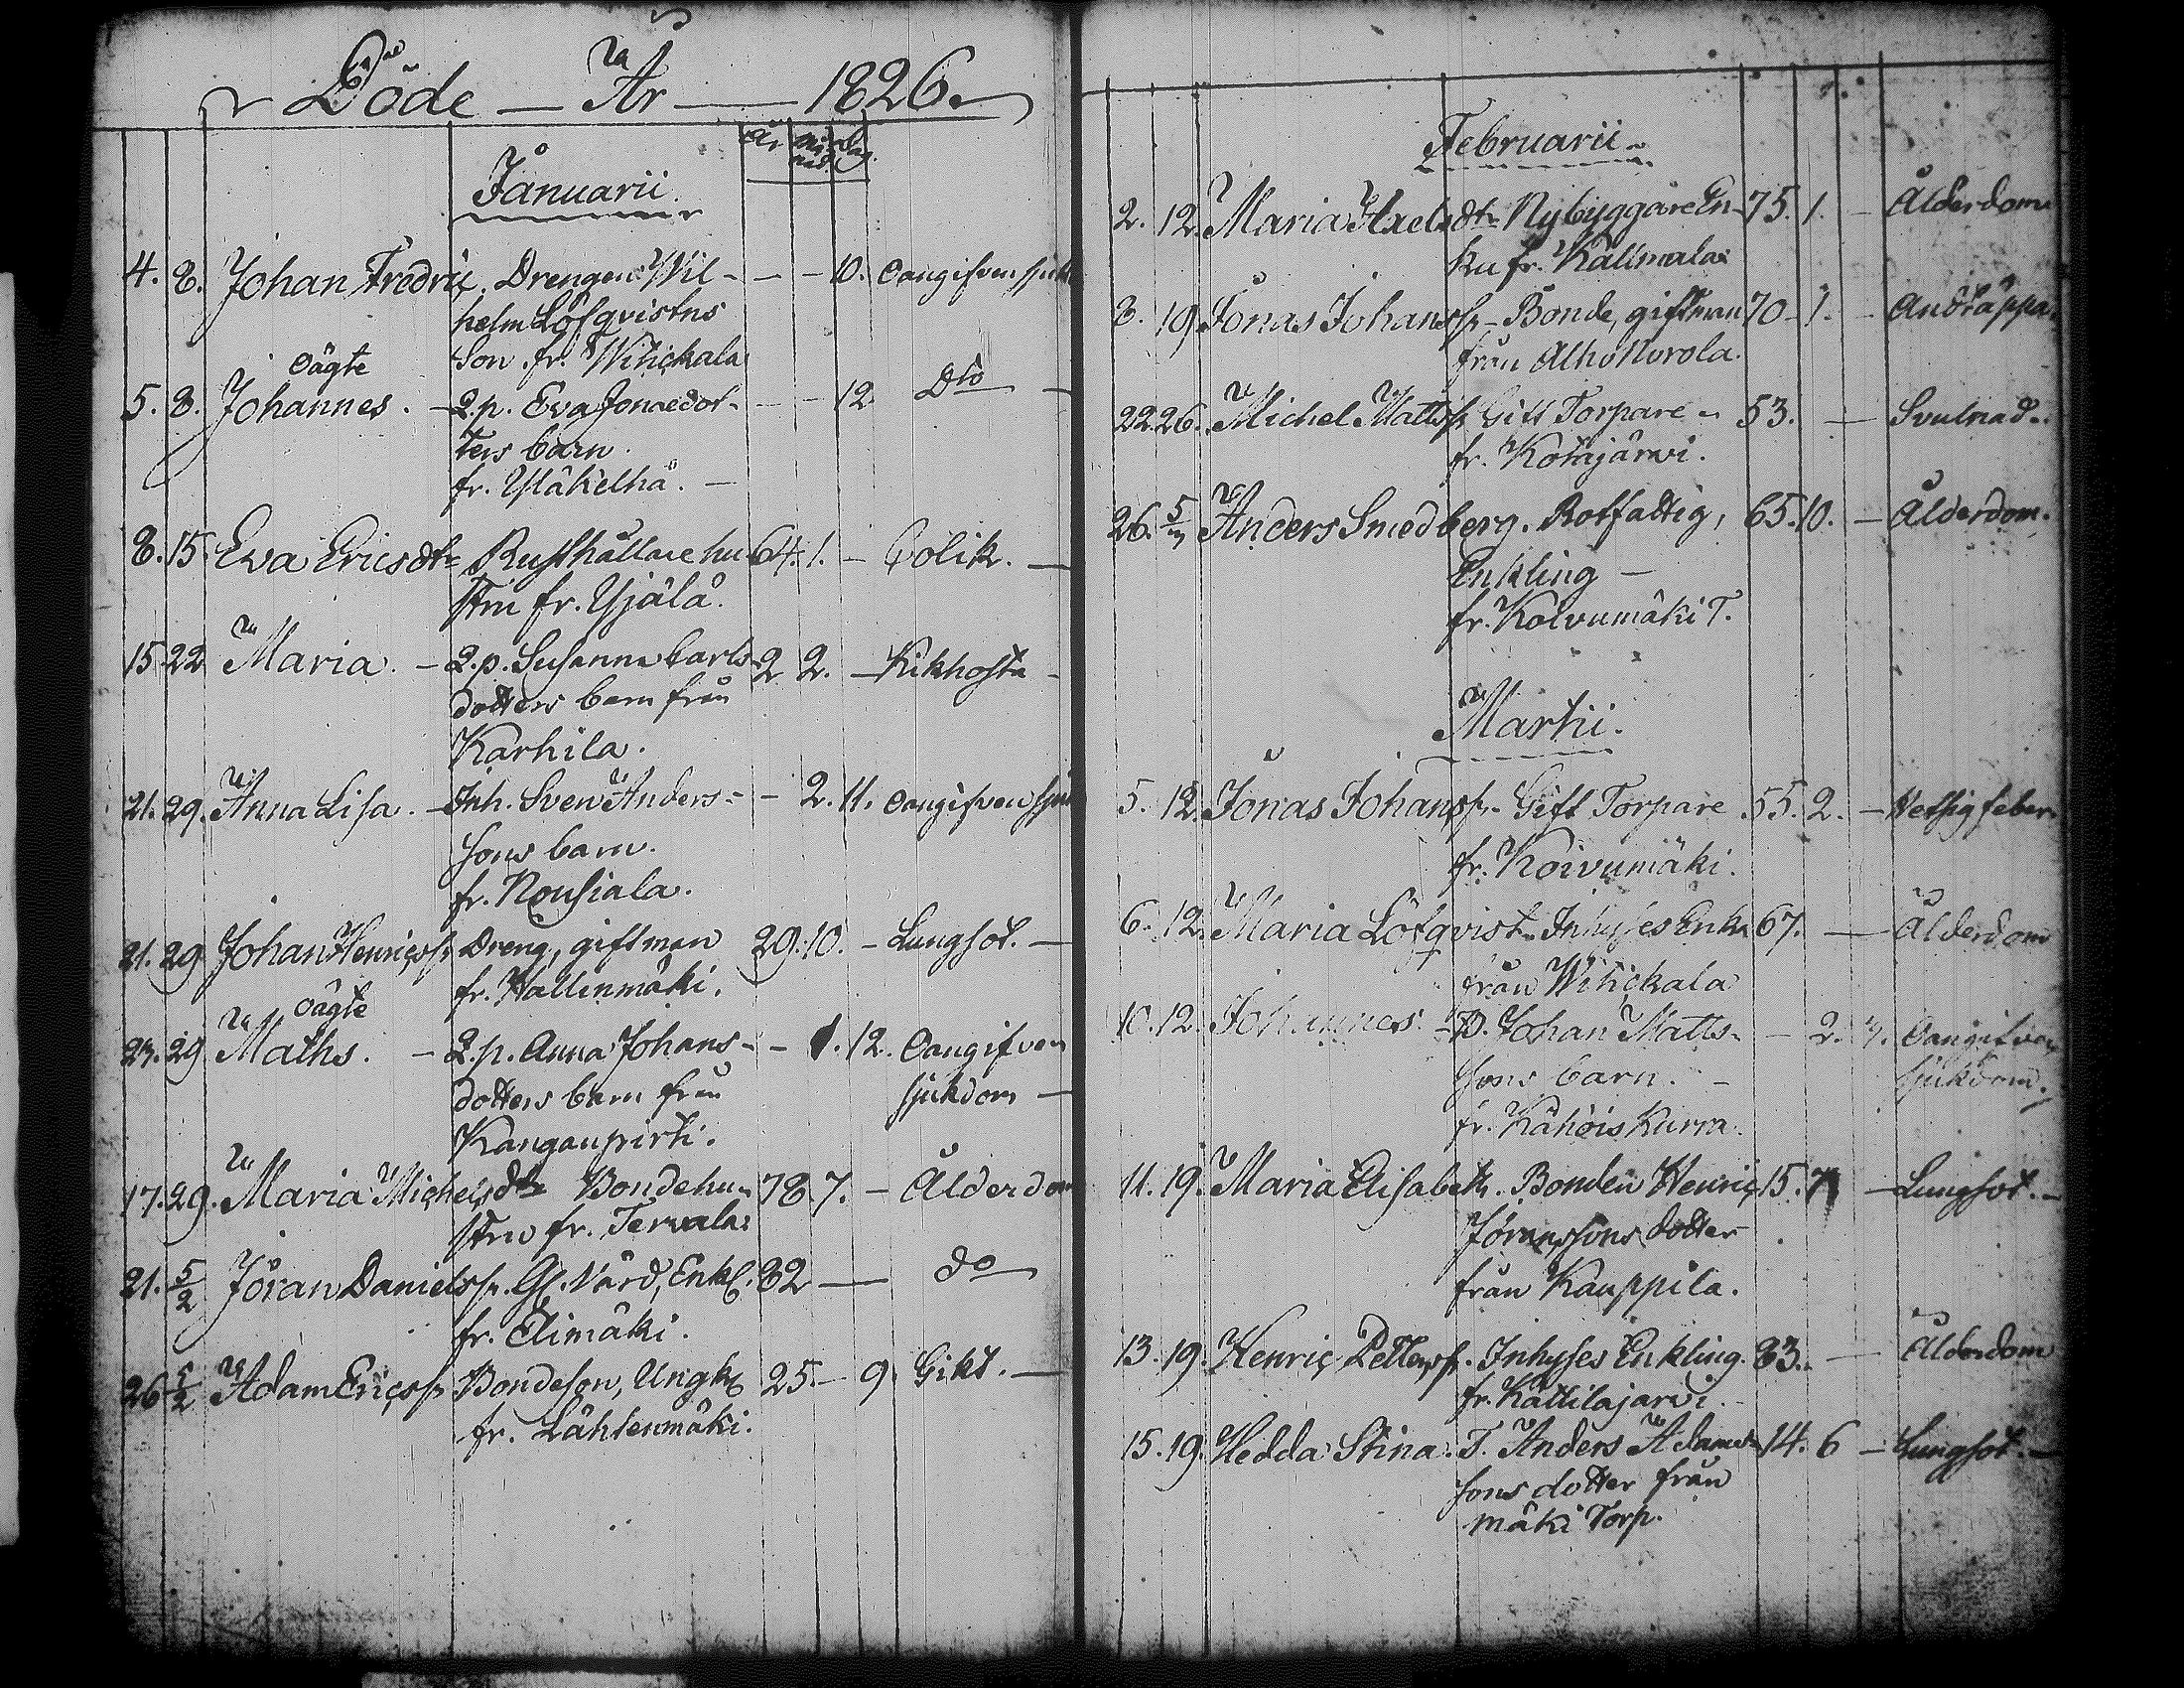 Döde — År — 1826.
år månad. dag.
Januarii.
4. 8. Johan Fredric. Drengen Wil- — — 10. Oangifven sjuk
helm Löfqvistns
Son. fr. Wihickala
oägte
5. 8. Johannes. — Q.p. Eva Jonaedot- — — 12. Dto —
ters barn.
fr. Ylläkelhä. —
8. 15. Eva Ericsdtr Rusthållare hu- 64. 1. — Colik. —
stru fr. Yjälä.
15. 22 Maria. — Q.p. Susanna Carls- 2 2. — Kikhosta —
dotters barn från
Karhila.
21. 29. Anna Lisa. — Inh. Sven Anders- — 2. 11. Oangifven sjuk
sons barn.
fr. Nousiala.
21. 29 Johan Henricsson Dreng, giftman 29. 10. — Lungsot. —
fr. Hallenmäki.
oägte
23. 29 Maths. — Q.p. Anna Johans- — 1. 12. Oangifven
dotters barn från sjukdom —
Kanganpirti.
17. 29. Maria Michelsdtr Bondehu- 78 7. — Ålderdom
stru fr. Tervala
21. 5/2 Jöran Danielsson. Gl. Värd, Enkl. 82 — do
fr. Elimäki.
26 5/2 Adam Ericsson Bondeson, Ungk. 25. — 9. Gikt. —
fr. Lähtenmäki.
Februarii.
2. 12. Maria Axelsdtr Nybyggare En- 75. 1. — Ålderdom
ka fr. Kallmala
8. 19. Jonas Johansson — Bonde, giftman 70 — 1. — Andtäppa.
från Alho Norola.
22. 26. Michel Mattsson Gift Torpare 53. — Svulnad.
fr. Kotajärwi.
26. 5/m Anders Smedberg. Rotfattig, 65. 10. — Ålderdom.
Enkling —
fr. Koivumäki T.
Martii.
5. 12. Jonas Johansson. Gift Torpare 55. 2. — Hetsig feber.
fr. Koivumäki.
6. 12. Maria Löfqvist. Inhyses Enka 67. — Ålderdom
från Wihickala
10. 12. Johannes. — B. Johan Matts- — 2. 3. Oangifven
sons barn. — sjukdom.
fr. Kähöis Kurra.
11. 19. Maria Elisabeth. Bonden Henric 15. 7 — Lungsot. —
Jöranssons dotter
från Kauppila.
13. 19. Henric Pettersson. Inhyses Enkling. 83. — Ålderdom
fr. Kattilajarvi.
15. 19. Hedda Stina. T. Anders Adams- 14. 6 — Lungsot. —
sons dotter från
mäki Torp.